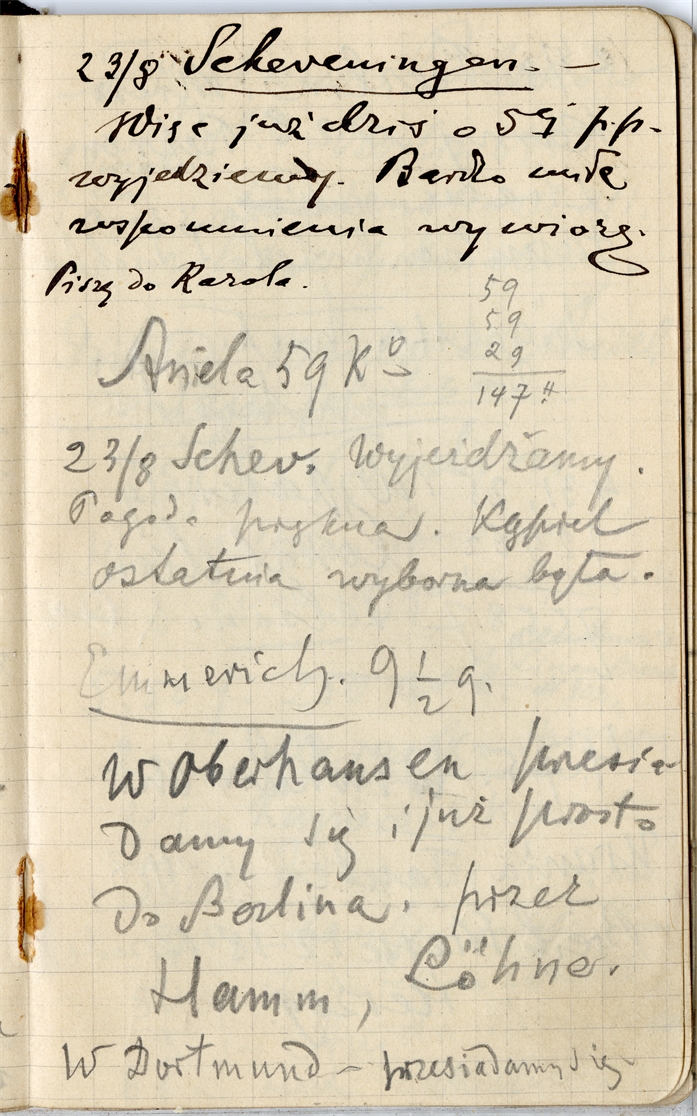 23/8 Scheveningen. –
Więc już dziś o 5 p.p.
wyjedziemy. Bardzo miłe
wspomnienia wywiozę.
Piszę do Karola.
59
59
29
147 H
Aniela 59 K
23/8 Schev. Wyjeżdżamy.
Pogoda piękna. Kąpiel
ostatnia wyborna była.
Emmerich. 9 1/2 g.
W Oberhausen przesia-
damy się i już prosto
do Berlina. przez
Hamm, Löhne.
W Dortmund – przesiadamy się